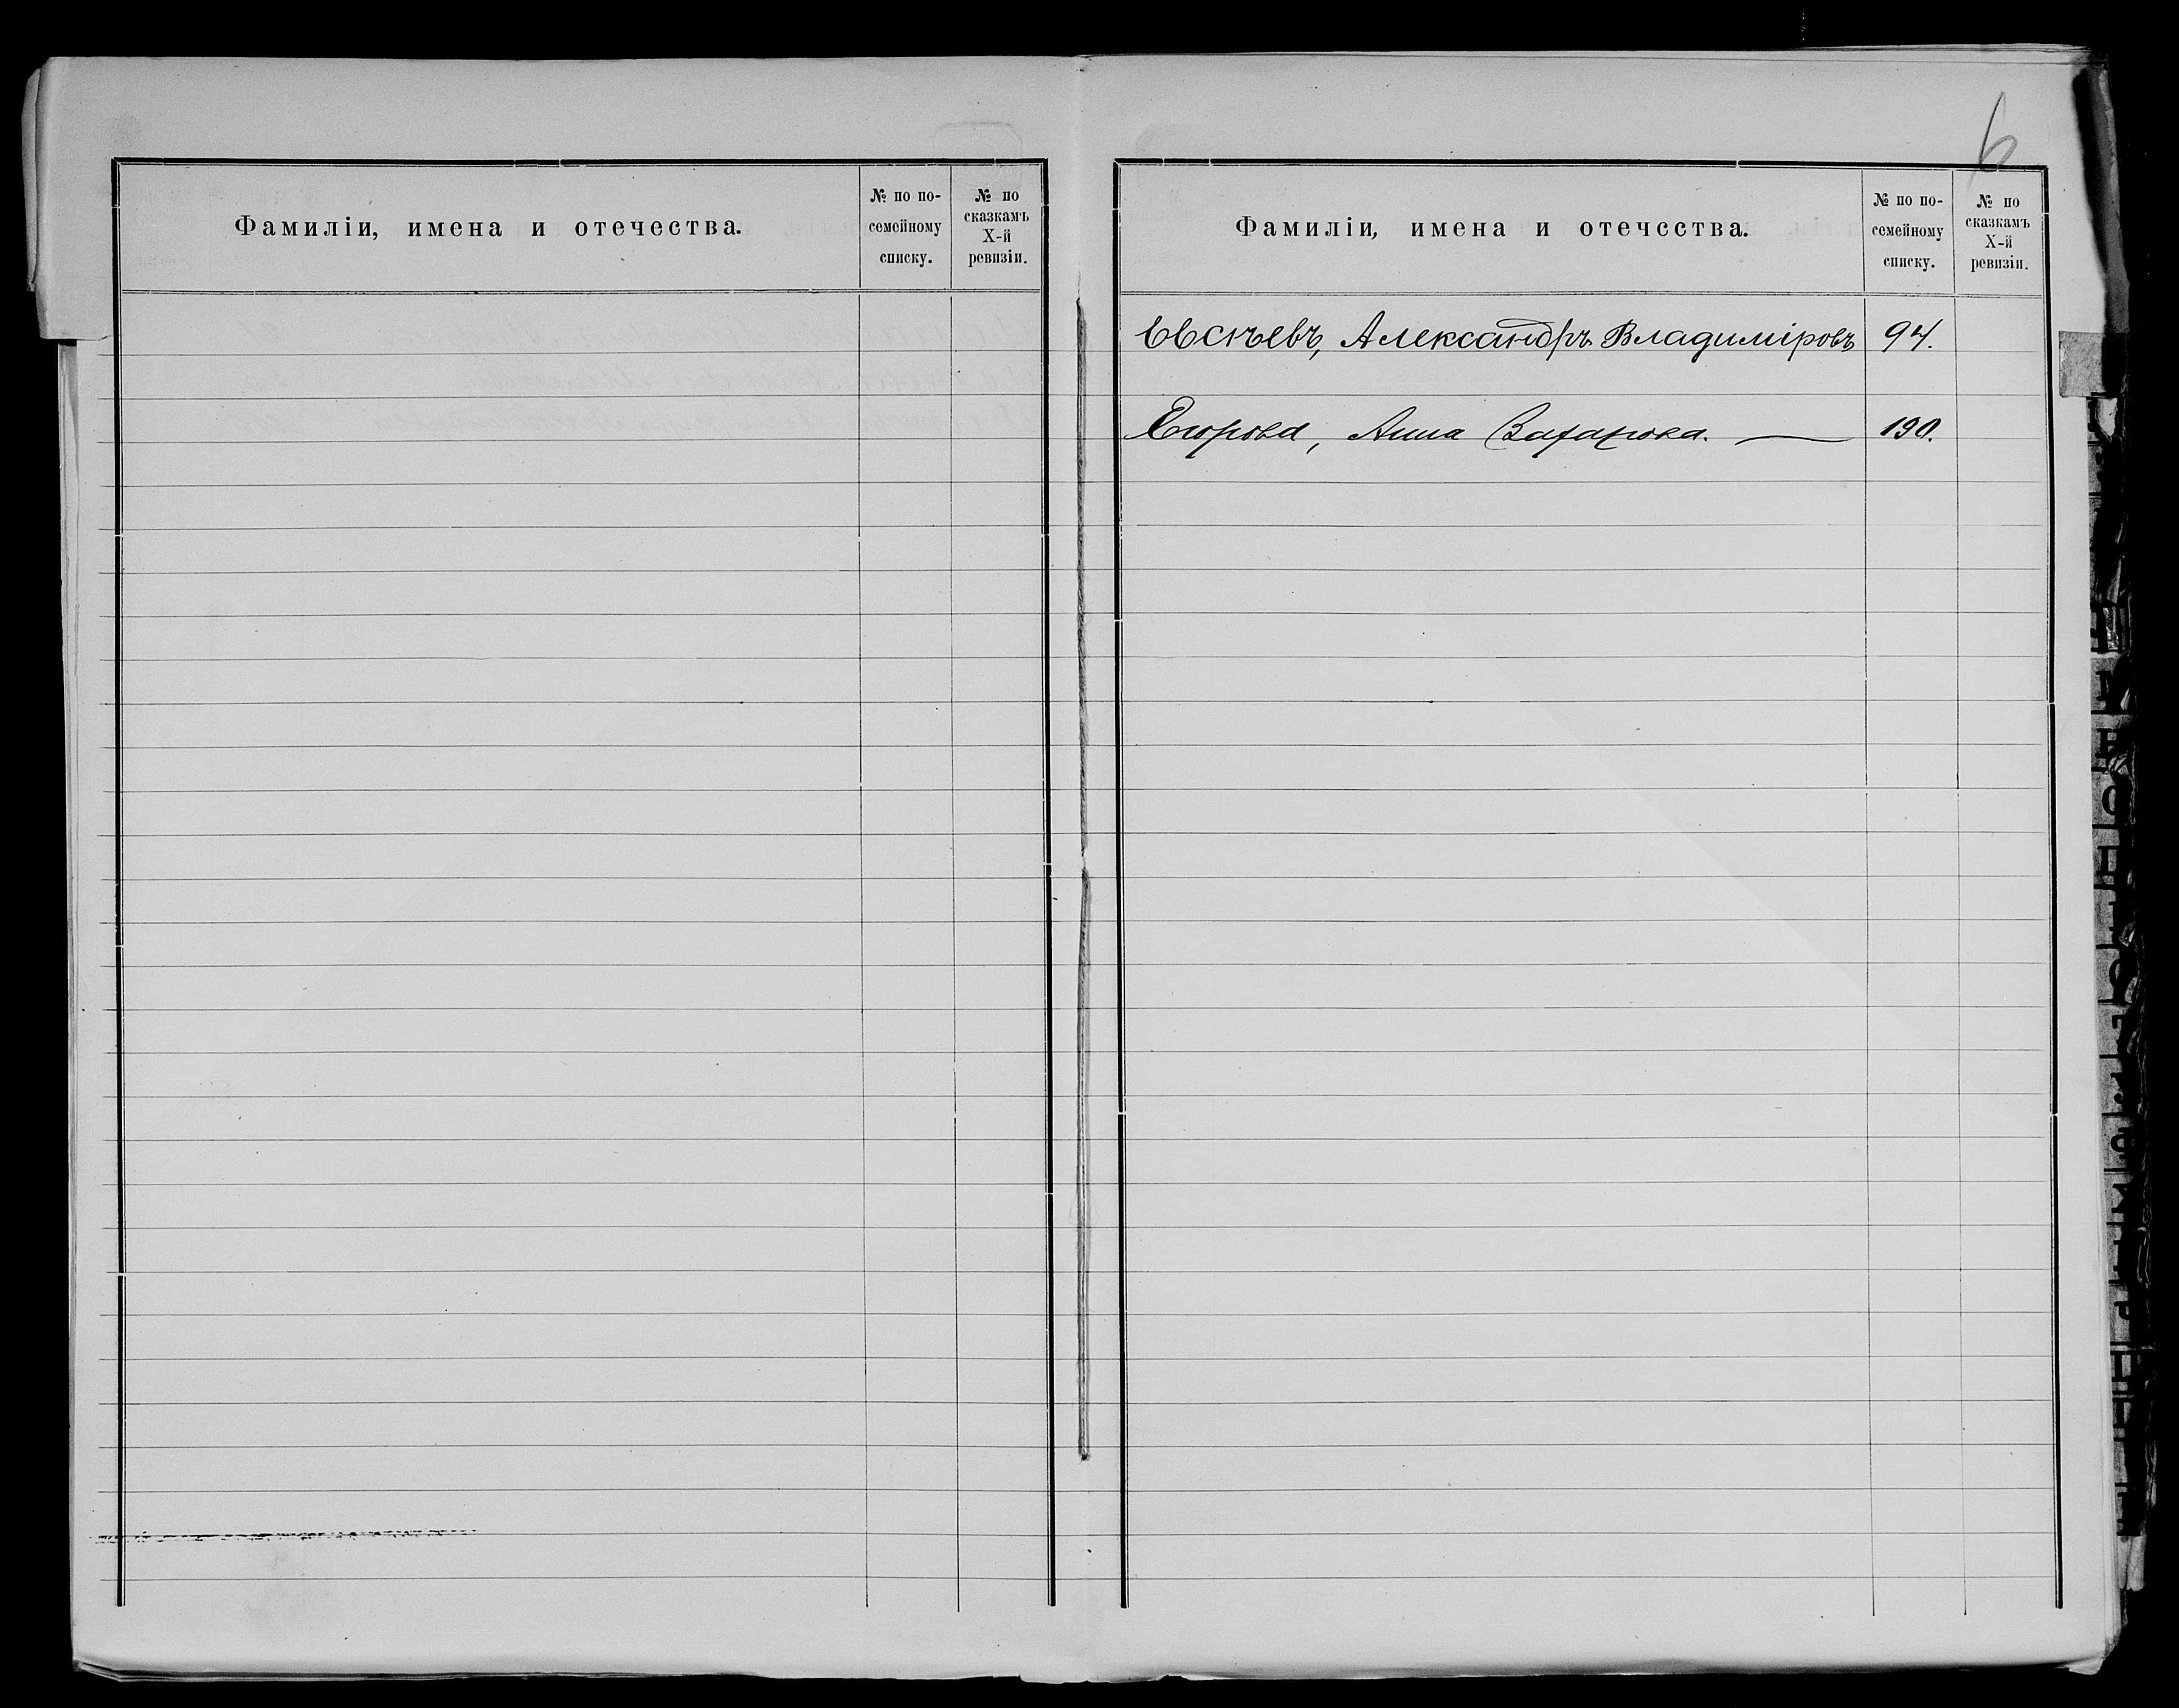 Фамиліи, имена и отечества.
№ по по-
семейному
списку.
№ по
сказкамъ
X-й
ревизіи.
6
Фамиліи, имена и отечества.
№ по по-
семейному
списку.
№ по
сказкамъ
X-й
ревизіи.
Евсѣевъ, Александръ Владиміровъ 94.
Егорова, Анна Захарова. — 190.